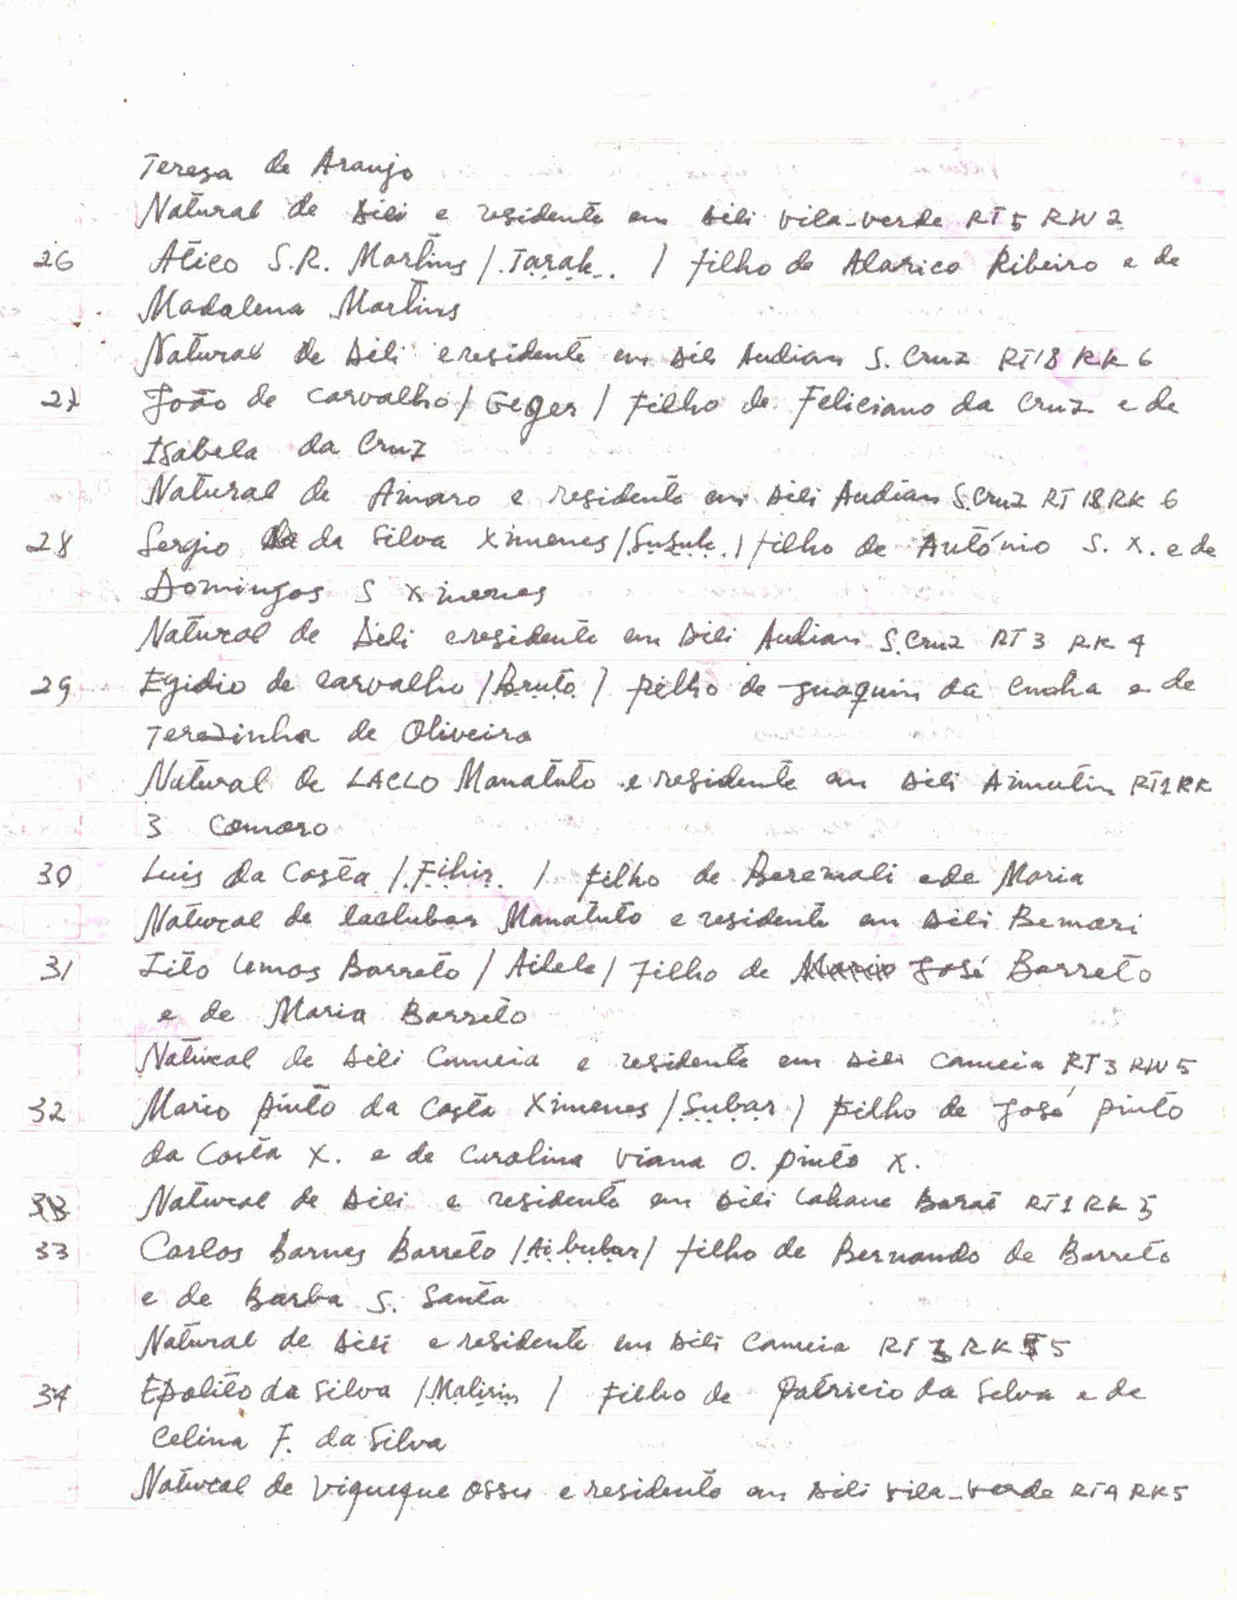 Teresa de Araujo
Natural de Dili e residente em Dili vila-verde RT 5 RW 2
26 Atico S.R. Martins / Tarak. / filho de Alarico Ribeiro e de
Madalena Martins
Natural de Dili e residente em Dili Audian S. Cruz RT 18 RK 6
27 João de carvalho / Geger / filho de Feliciano da Cruz e de
Isabela da Cruz
Natural de Ainaro e residente em Dili Audian S. Cruz RT 18 RK 6
28 Sergio da Silva Ximenes / Susuk. / filho de António S. X. e de
Domingos S Ximenes
Natural de Dili e residente em Dili Audian S. Cruz RT 3 RK 4
29 Egidio de carvalho / Bruto / filho de Juaquim da Cunha e de
Terezinha de Oliveira
Natural de LACLO Manatuto e residente em Dili Aimutin RT 1 RK
3 Comoro
30 Luis da Costa / Fihir. / filho de Beremali e de Maria
Natural de laclubar Manatuto e residente em Dili Bemori
31 Tito Lemos Barreto / Ailele / Filho de José Barreto
e de Maria Barreto
Natural de Dili Cameia e residente em Dili Cameia RT 3 RW 5
32 Mario pinto da Costa Ximenes / Subar / filho de José pinto
da Costa X. e de Carolina Viana O. pinto X.
Natural de Dili e residente em Dili Lahane Barat RT 1 RK 5
33 Carlos Barnes Barreto / Ai bubur / filho de Bernando de Barreto
e de Barba S. Santa
Natural de Dili e residente em Dili Cameia RT 3 RK 5
34 Epolito da Silva / Malirin / Filho de Patricio da Selva e de
Celina F. da Silva
Natural de Viqueque Ossu e residente em Dili Vila-Verde RT 4 RK 5